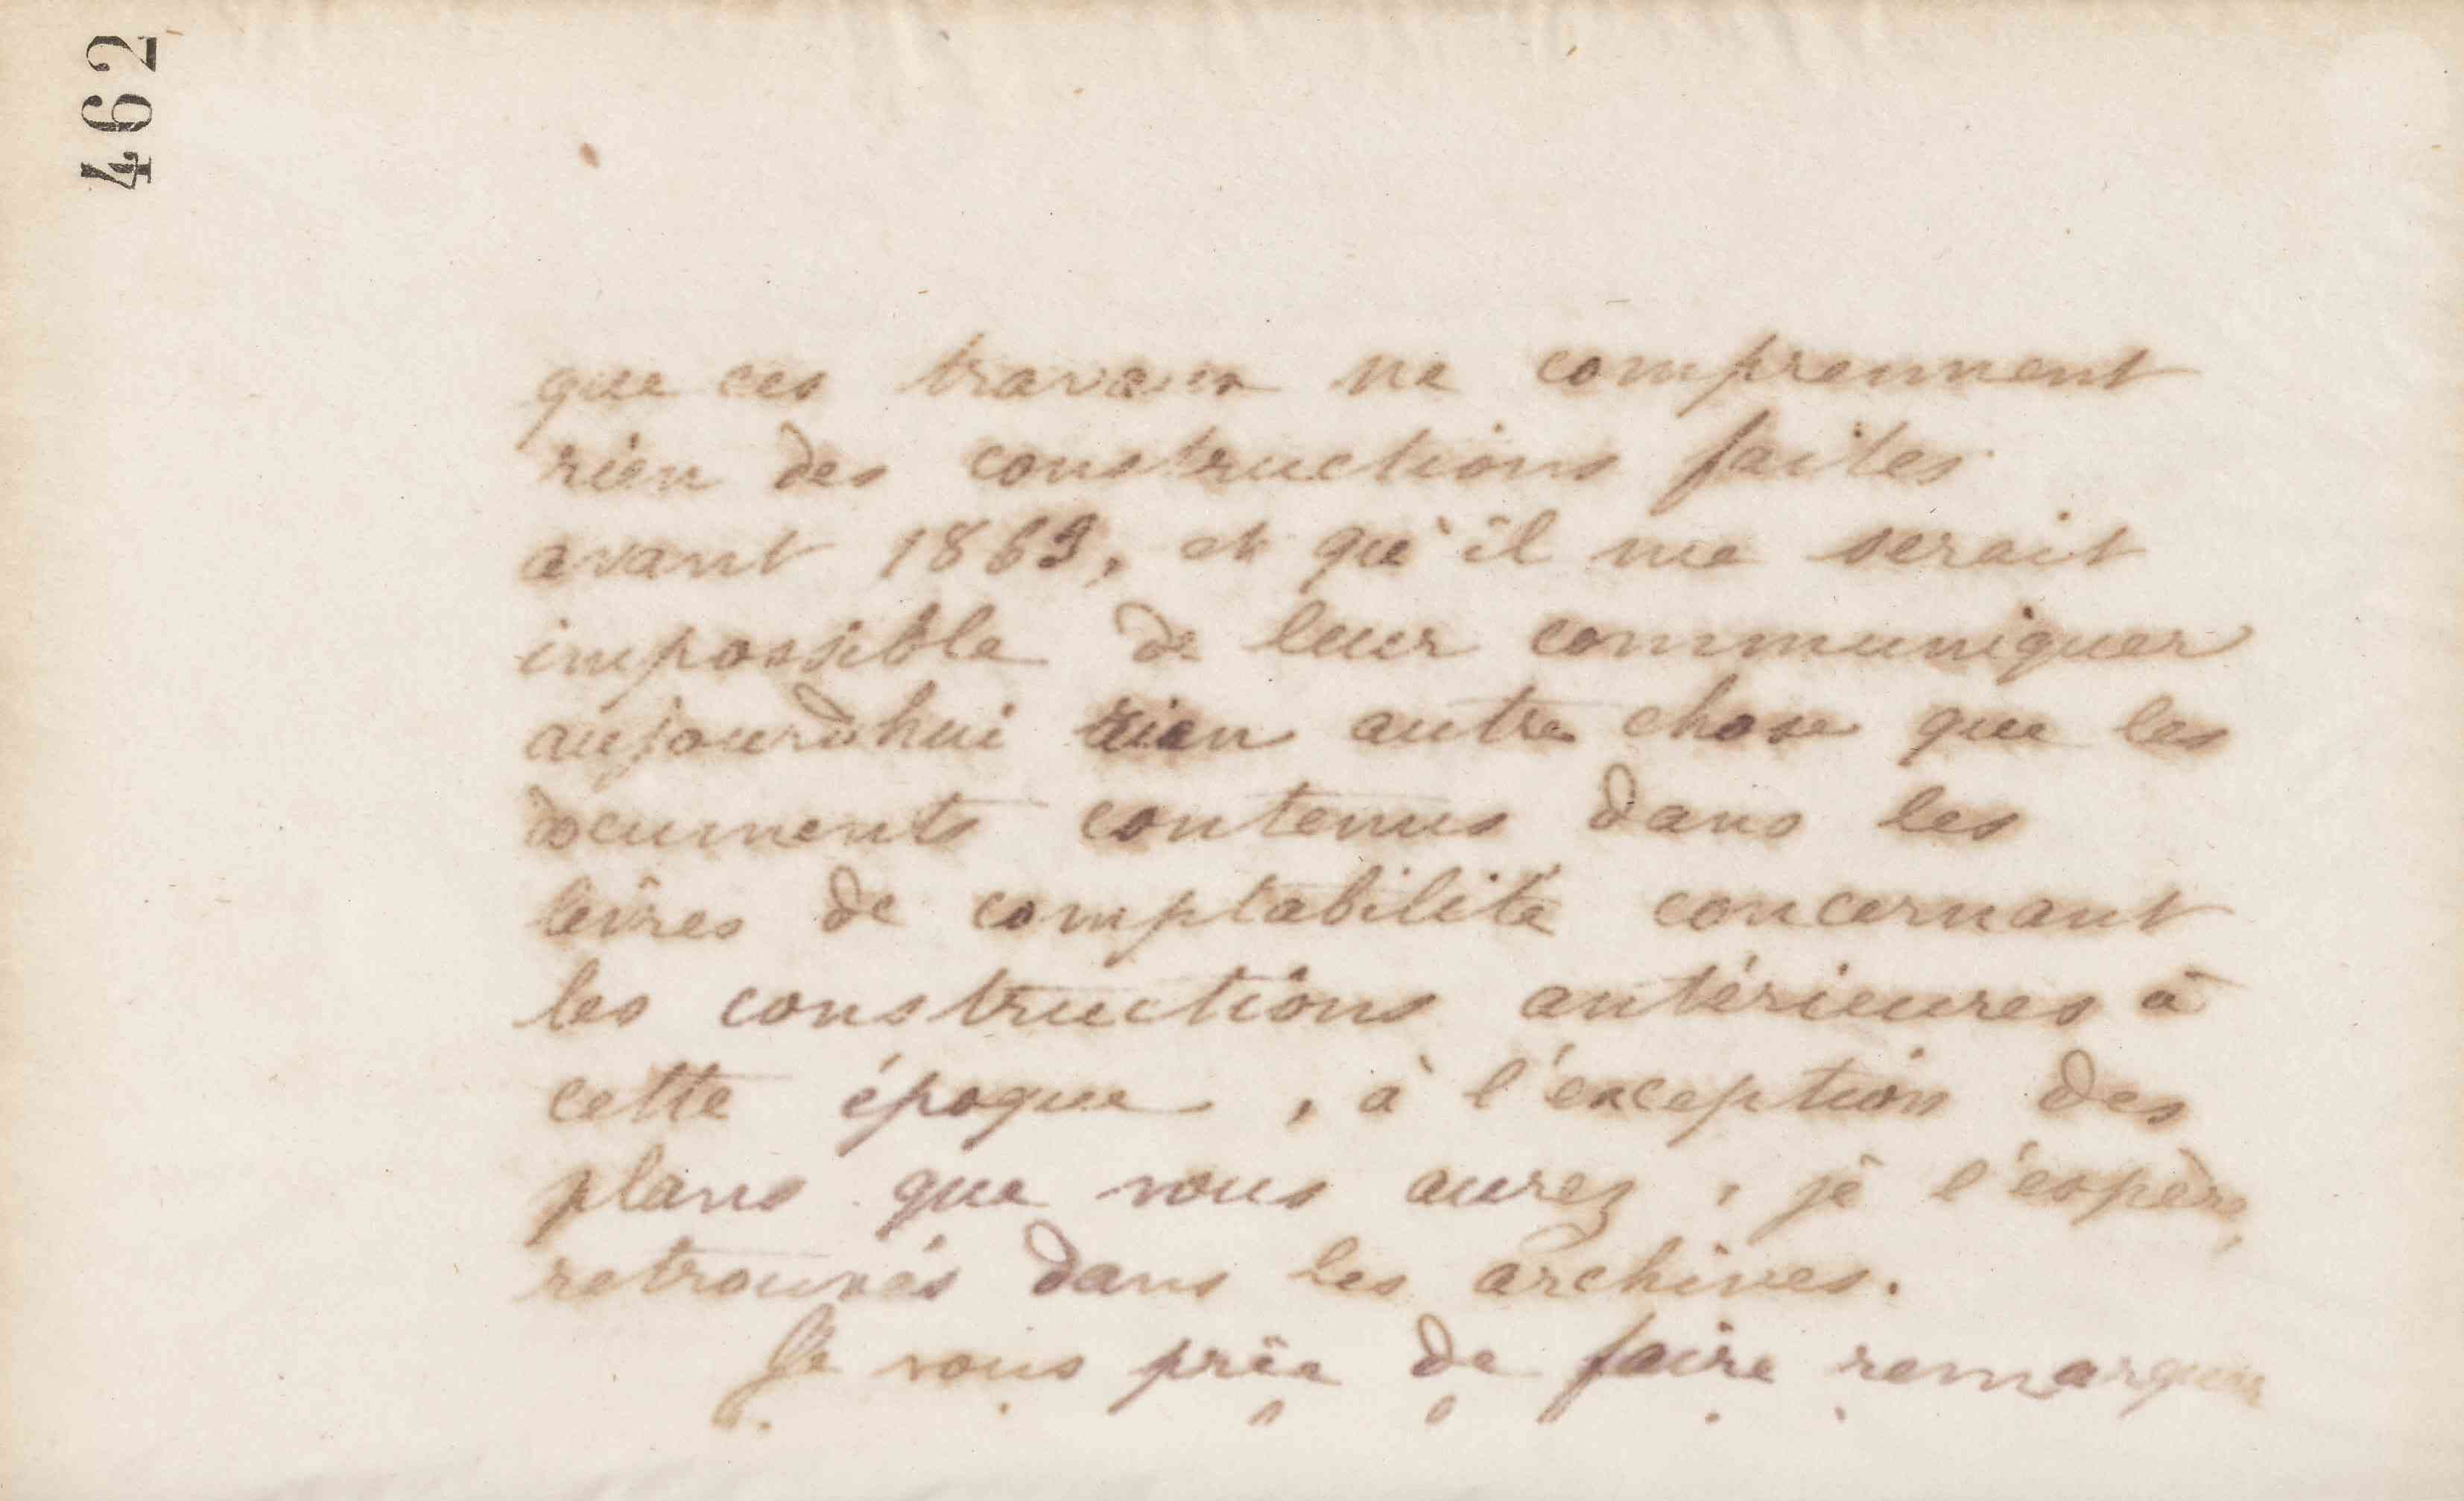 462
que ces travaux ne comprennent
rien des constructions faites
avant 1869, et qu'il me serait
impossible de leur communiquer
aujourd'hui rien autre chose que les
documents contenus dans les
livres de comptabilité concernant
les constructions antérieures à
cette époque, à l'exception des
plans que vous aurez, je l'espère,
retrouvés dans les archives.
Je vous prie de faire remarquer